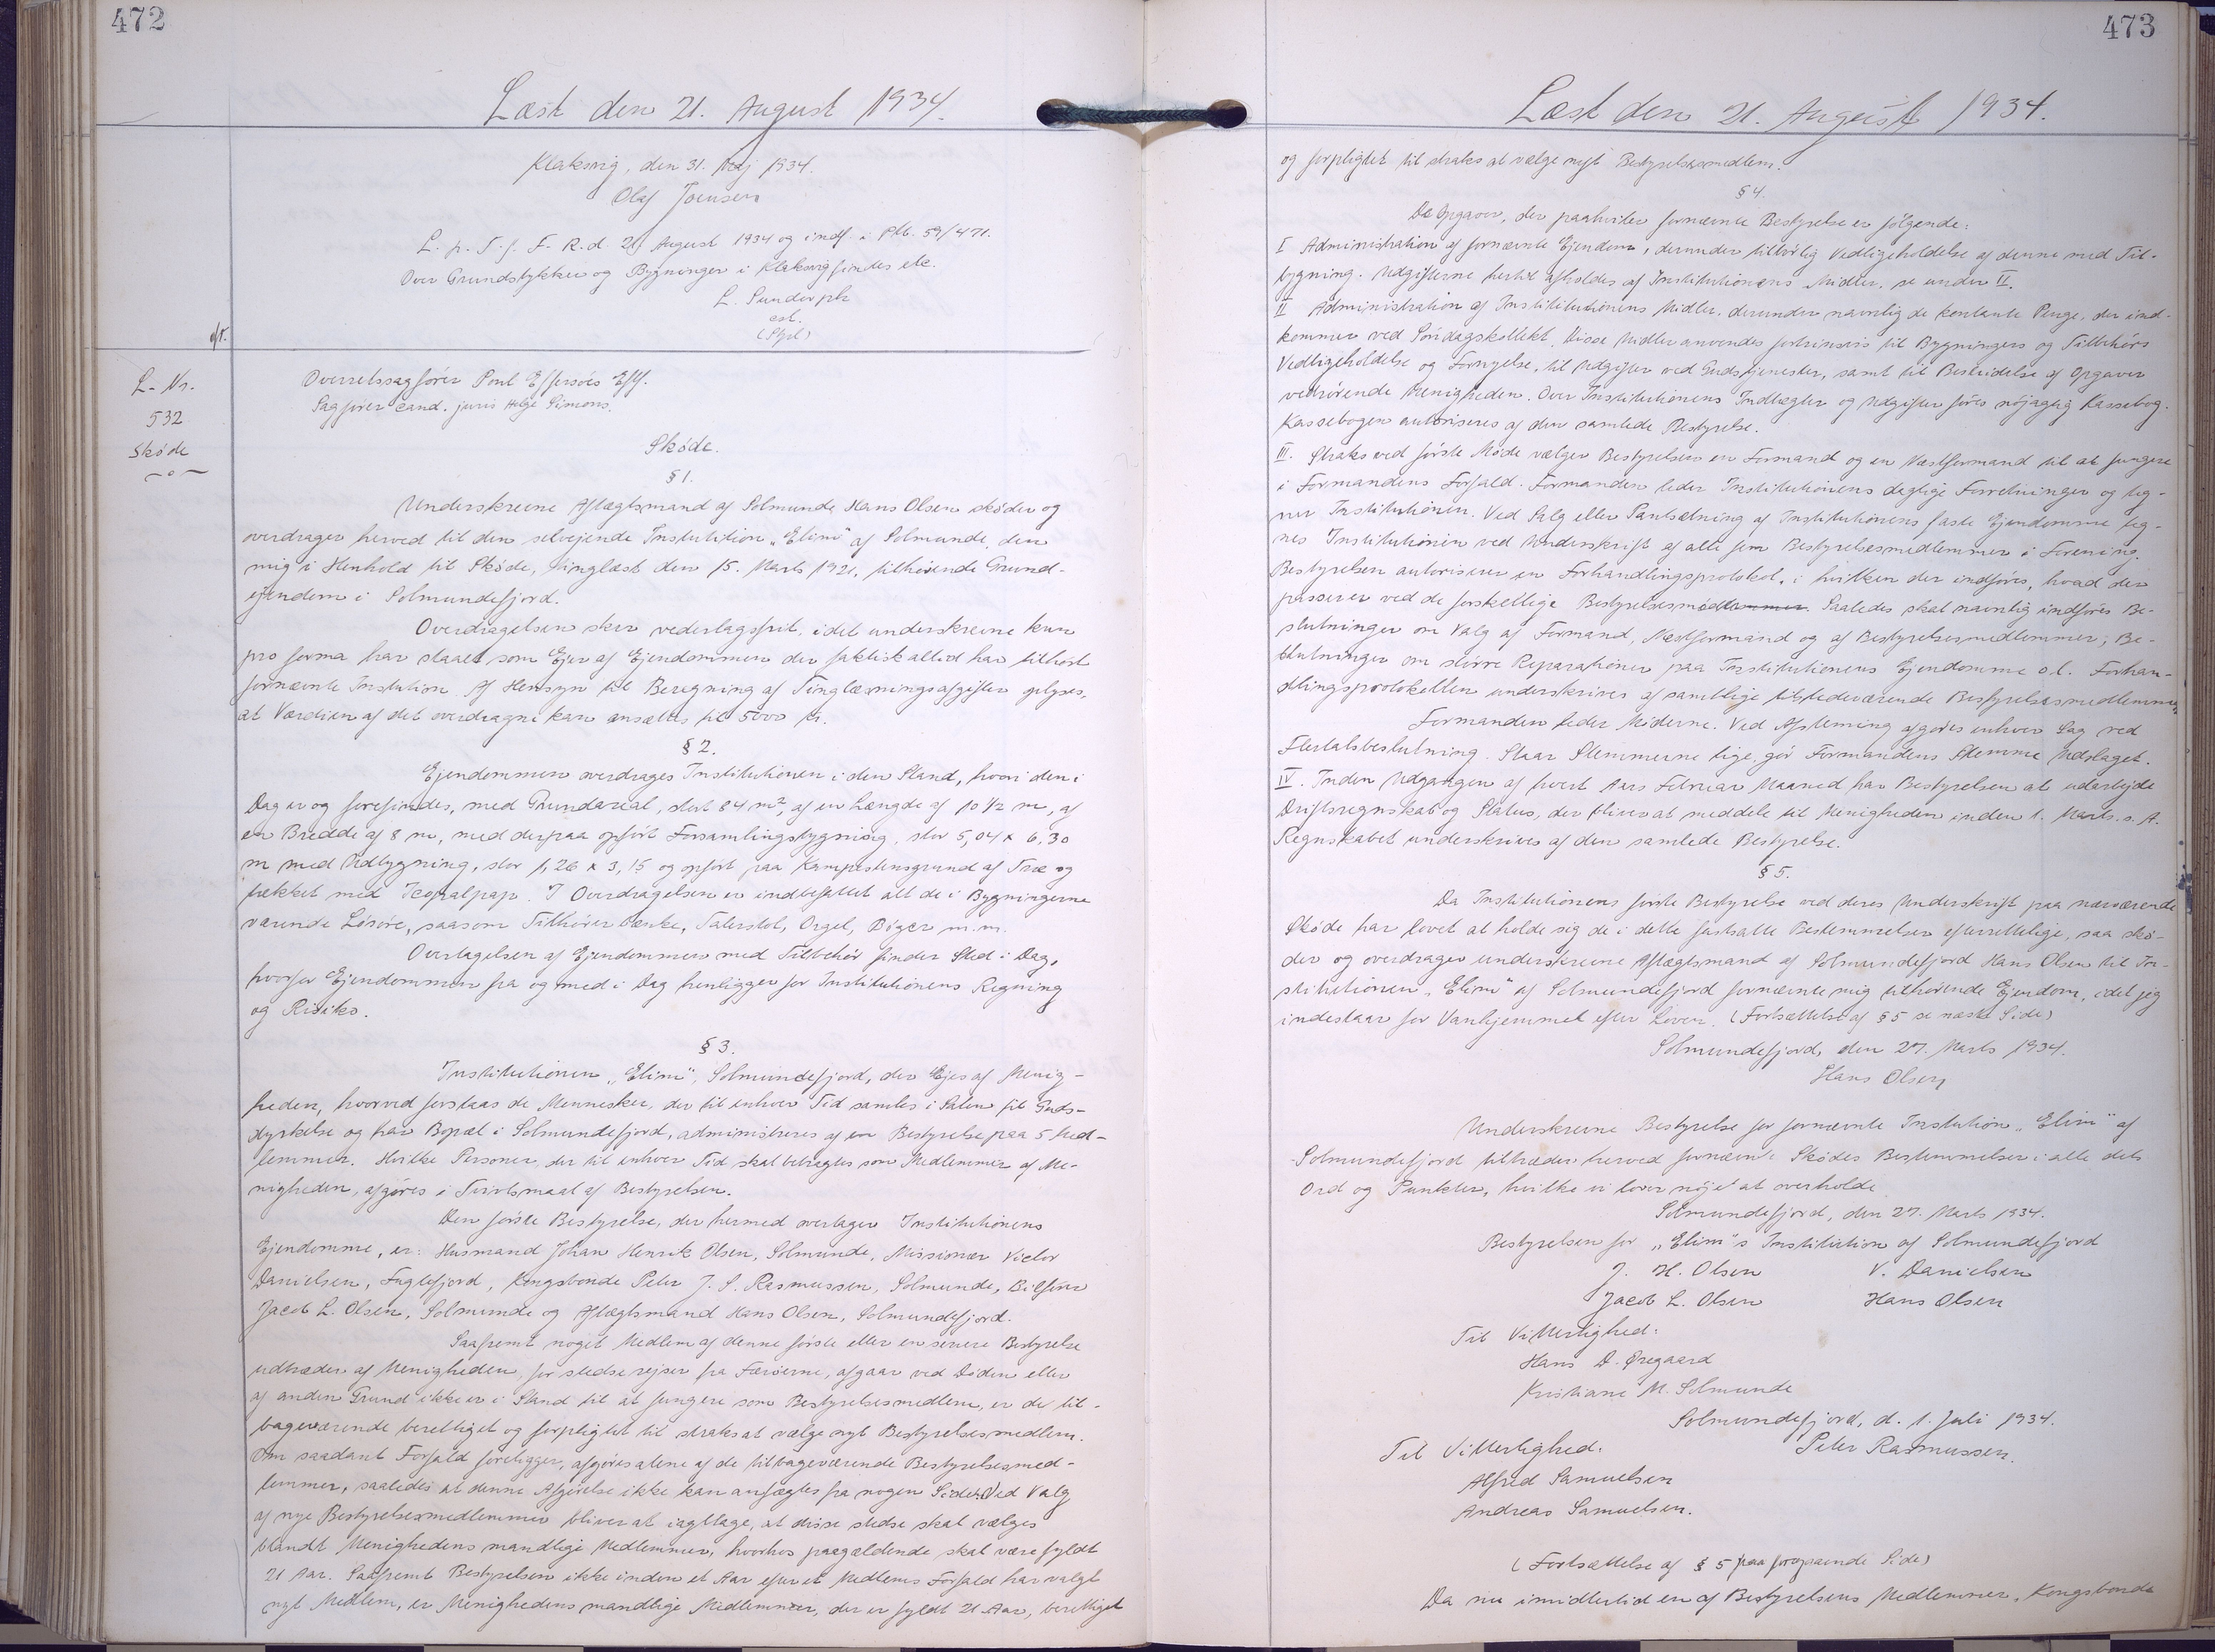 472
Læst den 21. August 1934.
Klaksvig, den 31. Maj 1934.
Olaf Joensen
L. p. T. f. F. R. d. 21 August 1934 og indf. i Ptb. 59/471.
Over Grundstykker og Bygninger i Klaksvig findes etc.
L. Sunderph
cst.
(Sgl)
L-Nr.
532
Skøde
Overretssagfører Poul Effersøes Eftf.
Sagfører cand. juris Helge Simons.
Skøde.
§ 1.
Underskrevne Aftægtsmand af Solmunde Hans Olsen skøder og
overdrager herved til den selvejende Institution „Elim“ af Solmunde, den
mig i Henhold til Skøde, tinglæst den 15. Marts 1921, tilhørende Grund-
ejendom i Solmundefjord.
Overdragelsen sker vederlagsfrit, idet underskrevne kun
pro forma har staaet som Ejer af Ejendommen der faktisk altid har tilhørt
fornævnte Instution. Af Hensyn til Beregning af Tinglæsningsafgifter oplyses,
at Værdien af det overdragne kan ansættes til 5000 Kr.
§ 2.
Ejendommen overdrages Institutionen i den Stand, hvori den i
Dag er og forefindes, med Grundareal, stort 84 m², af en Længde af 10 1/2 m, af
en Bredde af 8 m, med derpaa opført Forsamlingsbygning, stor 5,04 x 6,30
m med Udbygning, stor 1,26 x 3,15 og opført paa Kampestensgrund af Træ og
tækket med Icopalpap. I Overdragelsen er indbefattet alt de i Bygningerne
værende Løsøre, saasom Tilhører bænke, Talerstol, Orgel, Bøger m.m.
Overtagelsen af Ejendommen med Tilbehør finder Sted i Dag,
hvorfor Ejendommen fra og med i Dag henligger for Institutionens Regning
og Risiko.
§ 3.
Institutionen „Elim“, Solmundefjord, der Ejes af Menig-
heden, hvorved forstaas de Mennesker, der til enhver Tid samles i Salen til Guds-
dyrkelse og har Bopæl i Solmundefjord, administreres af en Bestyrelse paa 5 Med-
lemmer. Hvilke Personer, der til enhver Tid skal betragtes som Medlemmer af Me-
nigheden, afgøres i Tvivlsmaal af Bestyrelsen.
Den første Bestyrelse, der hermed overtager Institutionens
Ejendomme, er: Husmand Johan Henrik Olsen, Solmunde, Missionær Victor
Danielsen, Fuglefjord, Kongsbonde Peter J. S. Rasmussen, Solmunde, Bilfører
Jacob L. Olsen, Solmunde og Aftægtsmand Hans Olsen, Solmundefjord.
Saafremt noget Medlem af denne første eller en senere Bestyrelse
udtræder af Menigheden, for stedse rejser fra Færøerne, afgaar ved Døden eller
af anden Grund ikke er i Stand til at fungere som Bestyrelsesmedlem, er de til-
bageværende berettiget og forpligtet til straks at vælge nyt Bestyrelsesmedlem.
Om saadant Forfald foreligger, afgøres alene af de tilbageværende Bestyrelsesmed-
lemmer, saaledes at denne Afgørelse ikke kan anfægtes fra nogen Side. Ved Valg
af nye Bestyrelsesmedlemmer bliver at iagttage, at disse stedse skal vælges
blandt Menighedens mandlige Medlemmer, hvorhos paagældende skal være fyldt
21 Aar. Saafremt Bestyrelsen ikke inden et Aar efter et Medlems Forfald har valgt
nyt Medlem, er Menighedens mandlige Medlemmer, der er fyldt 21 Aar, berettiget
473
Læst den 21. August 1934.
og forpligtet til straks at vælge nyt Bestyrelsesmedlem.
§ 4.
De Opgaver, der paahviler fornævnte Bestyrelse er følgende:
I Administration af fornævnte Ejendom, derunder tilbørlig Vedligeholdelse af denne med Til-
bygning. Udgifterne hertil afholdes af Institutionens Midler, se under II.
II Administration af Instititutionens Midler, derunder navnlig de kontante Penge, der ind-
kommer ved Søndagskollekt. Disse Midler anvendes fortrinsvis til Bygningers og Tilbehørs
Vedligeholdelse og Fornyelse, til Udgifter ved Gudstjenester, samt til Bestridelse af Opgaver
vedrørende Menigheden. Over Institutionens Indtægter og Udgifter føres nøjagtig Kassebog.
Kassebogen autoriseres af den samlede Bestyrelse.
III. Straks ved første Møde vælger Bestyrelsen en Formand og en Næstformand til at fungere
i Formandens Forfald. Formanden leder Institutionens daglige Forretninger og teg-
ner Institutionen. Ved Salg eller Pantsætning af Institutionens faste Ejendomme teg-
nes Institutionen ved Underskrift af alle fem Bestyrelsesmedlemmer i Forening.
Bestyrelsen autoriserer en Forhandlingsprotokol, i hvilken der indføres, hvad der
passerer ved de forskellige Bestyrelsesmødlemmer. Saaledes skal navnlig indføres Be-
slutninger om Valg af Formand, Næstformand og af Bestyrelsesmedlemmer, Be-
slutninger om større Reparationer paa Institutionens Ejendomme o.l. Forhan-
dlingsprotokollen underskrives af samtlige tilstedeværende Bestyrelsesmedlemmer.
Formanden leder Møderne. Ved Afstemning afgøres enhver Sag ved
Flertalsbeslutning. Staar Stemmerne lige, gør Formandens Stemme Udslaget.
IV. Inden Udgangen af hvert Aars Februar Maaned har Bestyrelsen at udarbejde
Driftsregnskab og Status, der bliver at meddele til Menigheden inden 1. Marts. s. A.
Regnskabet underskrives af den samlede Bestyrelse.
§ 5.
Da Institutionens første Bestyrelse ved deres Underskrift paa nærværende
Skøde har lovet at holde sig de i dette fastsatte Bestemmelser efterrettelige, saa skø-
der og overdrager underskrevne Aftægtsmand af Solmundefjord Hans Olsen til In-
stitutionen „Elim“ af Solmundefjord fornævnte mig tilhørende Ejendom, idet jeg
indestaar for Vanhjemmel efter Loven. (Fortsættelse af § 5 se næste Side)
Solmundefjord, den 27. Marts 1934.
Hans Olsen
Underskrevne Bestyrelse for fornævnte Instution „Elim“ af
Solmundefjord tiltræder herved fornævnte Skødes Bestemmelser i alle dets
Ord og Punkter, hvilke vi lover nøje at overholde
Solmundefjord, den 27. Marts 1934.
Bestyrelsen for „Elim“s Institution af Solmundefjord
J. H. Olsen V. Danielsen
Jacob L. Olsen Hans Olsen
Til Vitterlighed:
Hans D. Øregaard
Kristiane M. Solmunde
Solmundefjord, d. 1. Juli 1934.
Til Vitterlighed: Peter Rasmussen.
Alfred Samuelsen
Andreas Samuelsen.
(Fortsættelse af § 5 paa foregaaende Side)
Da nu imidlertid en af Bestyrelsens Medlemmer, Kongsbonde